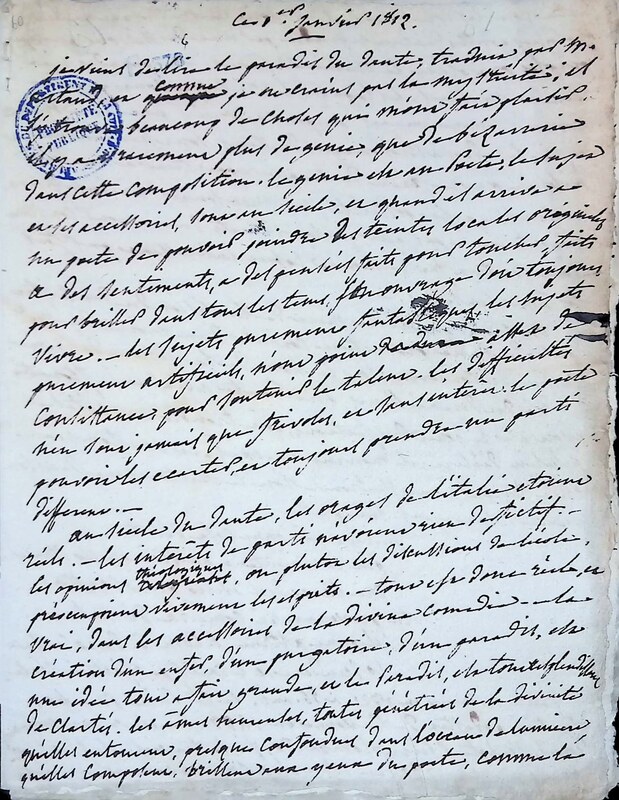 Ce 1er Janvier 1812.
je viens de lire le paradis du dante, traduit par M.
en comme je ne crains pas la mysticité, et
beaucoup de choses qui m'ont fait plaisir.
il y a vraiment plus de genie, que de bizarrerie
dans cette composition. le genie est au Poete, le sujet
et les accessoires, sont au siecle, et quand il arrive a
un poete de pouvoir joindre des teintes locales originales
a des sentiments, a des pensées faits pour toucher, faits
pour briller dans tous les tems, son ouvrage doit toujours
vivre. — les sujets purement fantastiques, les sujets
purement artificiels, n'ont point assez de
consistance, pour soutenir le talent. les difficultés
n'en sont jamais que frivoles, et sans intérêt. le poete
pouvoit les ecarter, et toujours prendre un parti
different. —
au siecle du dante, les orages de l'italie etoient
réels. — les intérêts de parti n'avoient rien de fictif. —
les opinions théologiques, ou plutôt les discussions de l'école,
préoccupoient vivement les esprits. — tout est donc réel, et
vrai, dans les accessoires de la divina comedia — la
création d'un enfer, d'un purgatoire, d'un paradis, est
une idée tout a fait grande, et le Paradis, est tout resplendissant
de clartés. les âmes heureuses, toutes pénétrées de la divinité
qu'elles entourent, presque confondues dans l'océan de lumiere
qu'elles composent, brillent aux yeux du poete, comme la
PROPRIÉTÉ
PUBLIQUE